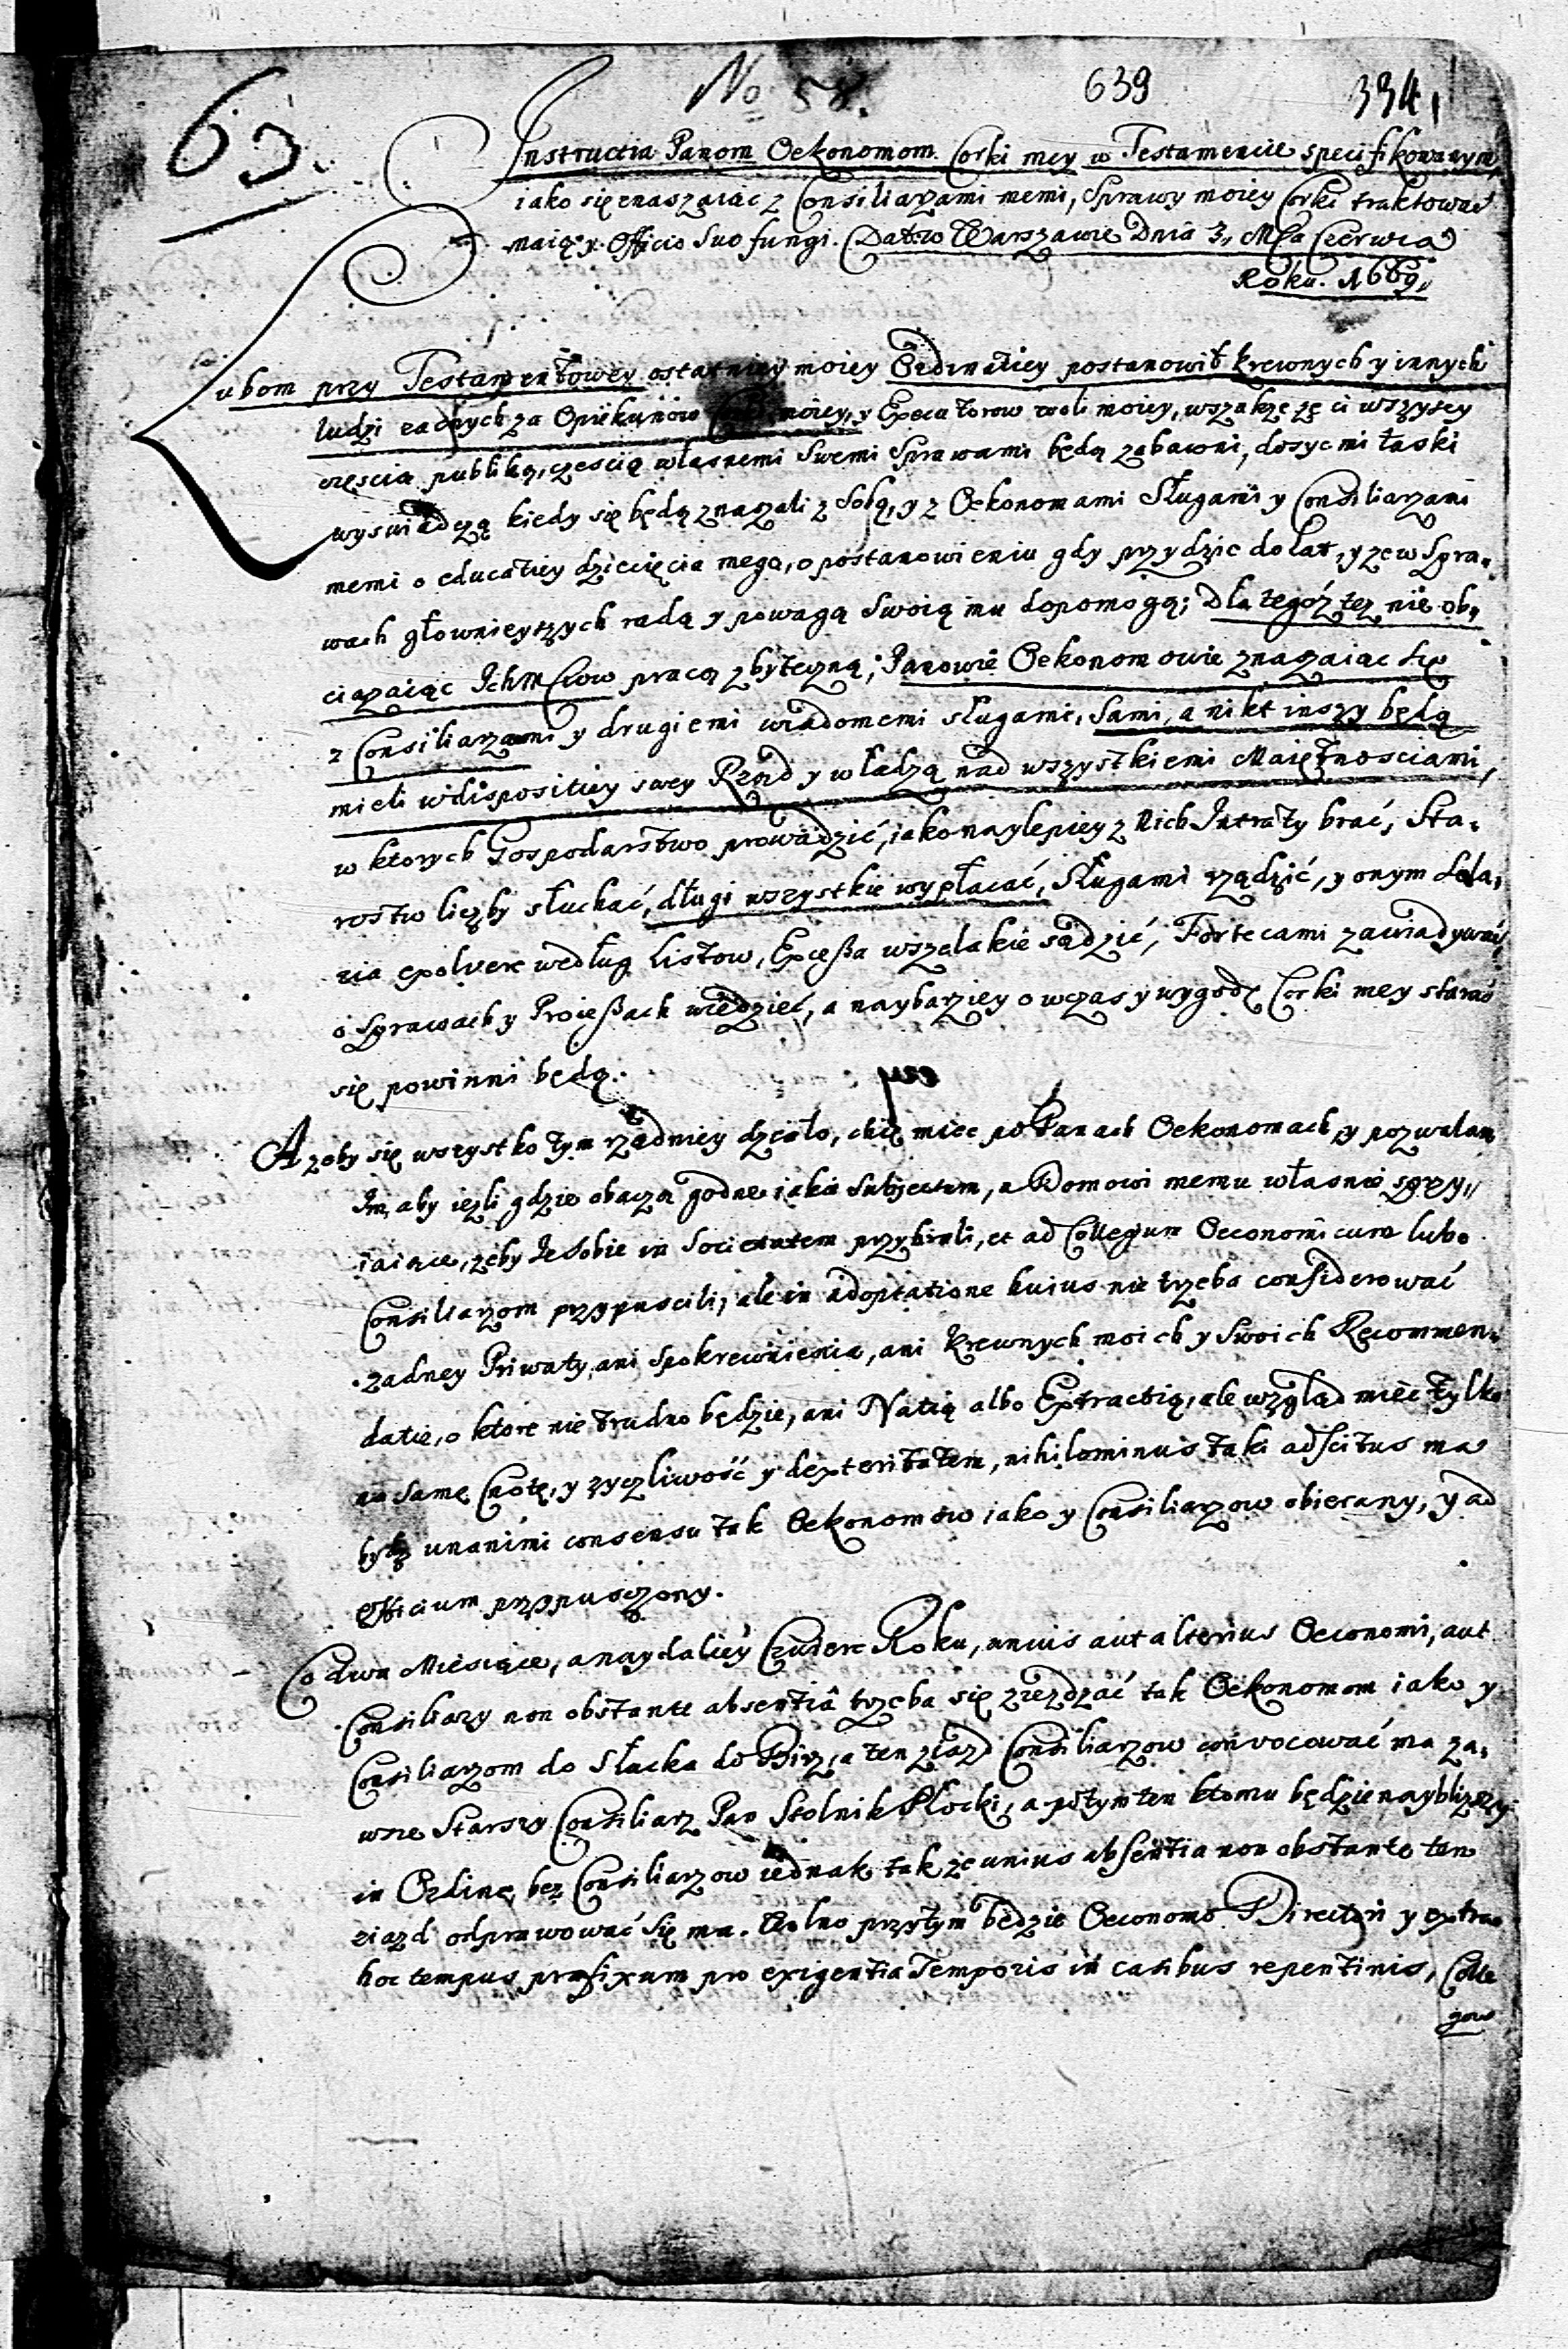 63.
No 58.
639
334,
Instructia Panom Oekonomom Corki mey w Testamencie specifikowanym,
iako się znaszaiąc z Consiliarzami memi, Sprawy moiey Corki traktować
maią y Officio suo fungi. Dat. w Warszawie Dnia 3, Mca Czerwca
Roku. 1669.
Lubom przy Testamentowey ostatniey moiey Ordinatiey postanowił krewnych y innych
ludzi zacnych za Opiekunow Corki moiey, y Executorow woli moiey, wszakze ze ci wszyscy
częscią publiką, częscią własnemi Swemi Sprawami będą zabawni, dosyc mi łaski
wyswiadczą kiedy się będą znaszali z Sobą, y z Oekonomami Sługami y Consiliarzami
memi o educatiey dziecięcia mego, o postanowieniu gdy przydzie do lat, y ze w Spra-
wach głownieyszych radą y powagą Swoią mu dopomogą; Dla tegoż tez nie ob-
ciązaiąc Ichmciow pracą zbyteczną; Panowie Oekonomowie znaszaiąc się
z Consiliarzami y drugiemi wiadomemi sługami, Sami, a nikt inszy będą
mieli w dispositiey swey Rząd y władzą nad wszystkiemi Maiętnosciami,
w ktorych Gospodarstwo prowadzić, iako naylepiey z nich Intraty brać, Sta-
rostw liczby słuchać, długi wszystkie wypłacać, Sługami rządzić, y onym Sala-
ria exolvere według Listow, Excessa wszelakie sądzić, Fortecami zawiadywać,
o Sprawach y Processach wiedzieć, a naybarziey o wczas y wygodę Corki mey starać
się powinni będą.
A zeby się wszystko tym rządniey dzeało, chcę miec po Panach Oekonomach, y pozwalam
Im, aby iezli gdzie obaczą godne iakie Subjectum, a Domowi memu własnie sprzy-
iaiące, zeby Ie Sobie in Societatem przybrali, et ad Collegium Oeconomicum lubo
Consiliarzom przypuscili, ale in adoptatione huius nie trzeba considerować
zadney Priwaty, ani Spokrewnienia, ani krewnych moich y Swoich Recommen-
datie, o ktore nie trudno będzie, ani Natią albo Extractią, ale wzgląd mieć tylko
na Samę Cnotę, y zyczliwość y dexteritatem, nihilominus taki adscitus ma
bydz unanimi consensu tak Oekonomow iako y Consiliarzow obierany, y ad
Officium przypusczony.
Co dwa Miesiące, a naydaliey Czwierć Roku, unius aut alterius Oeconomi, aut
Consiliarzy non obstante absentiâ trzeba się ziezdzać tak Oekonomom iako y
Consiliarzom do Słucka do Birz, a ten ziazd Consiliarzow convocować ma za-
wsze Starszy Consiliarz Pan Stolnik Płocki, a potym ten ktomu będzie nayblizszy
in Ordine bez Consiliarzow iednak tak ze unius absentia non obstante ten
ziazd odprawować się ma. Wolno przytym będzie Oeconomo Directori y extra
hoc tempus praefixum pro exigentia Temporis in casibus repentinis, Colle
gow